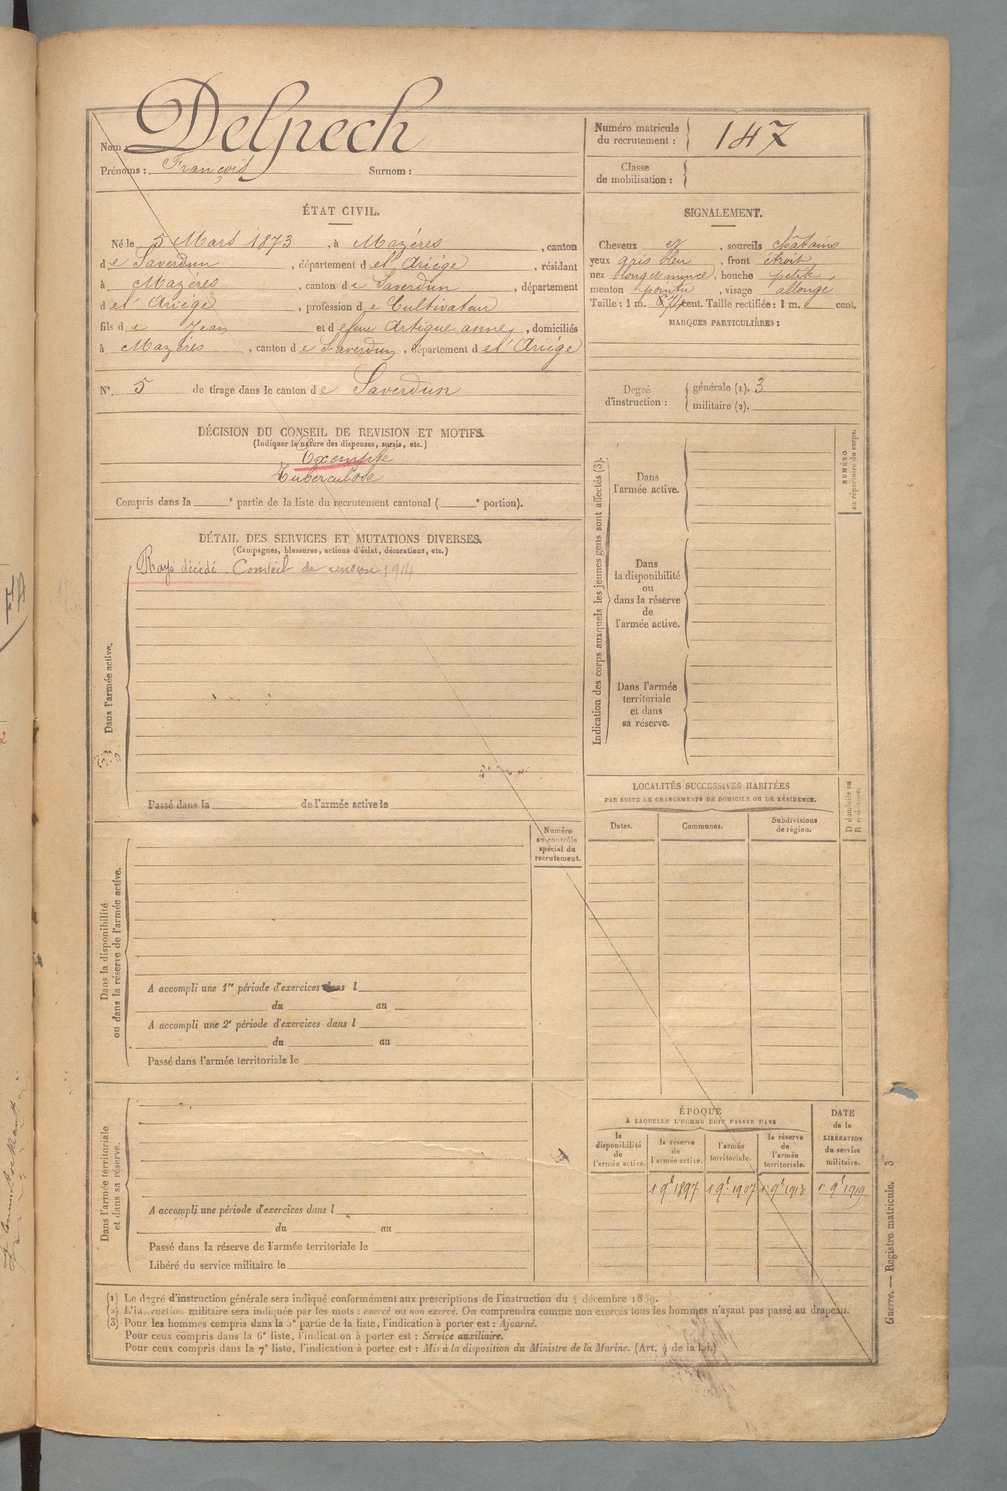 Nom : Delpech
Prénoms : François Surnom :
Numéro matricule du recrutement : 147
Classe de mobilisation :
ÉTAT CIVIL.
Né le 5 Mars 1873, à Mazéres, canton
de Saverdun, département de l'Ariége, résidant
à Mazéres, canton de Saverdun, département
de l'Ariége, profession de Cultivateur
fils de Jean et de feue Artigue anne, domiciliés
à Mazéres, canton de Saverdun, département de l'Ariége
N° 5 de tirage dans le canton de Saverdun
SIGNALEMENT.
Cheveux et, sourcils châtains
yeux gris bleu, front étroit
nez long et mince, bouche petite,
menton pointu, visage allongé
Taille : 1 m. cent. Taille rectifiée : 1 m. cent.
MARQUES PARTICULIÈRES :
Degré d'instruction : générale (1). 3
militaire (2).
DÉCISION DU CONSEIL DE REVISION ET MOTIFS.
(Indiquer la nature des dispenses, sursis, etc.)
Exempté
Tuberculose
Compris dans la e partie de la liste du recrutement cantonal ( e portion).
DÉTAIL DES SERVICES ET MUTATIONS DIVERSES.
(Campagnes, blessures, actions d'éclat, décorations, etc.)
Rayé décédé. Conseil de revision 1914
Dans l'armée active.
Passé dans la de l'armée active le
Indication des corps auxquels les jeunes gens sont affectés (3).
Dans l'armée active.
Dans la disponibilité ou dans la réserve de l'armée active.
Dans l'armée territoriale et dans sa réserve.
NUMÉRO au répertoire du corps.
LOCALITÉS SUCCESSIVES HABITÉES
PAR SUITE DE CHANGEMENTS DE DOMICILE OU DE RÉSIDENCE.
Dates. Communes. Subdivisions de région.
Numéro au contrôle spécial du recrutement.
Dans la disponibilité ou dans la réserve de l'armée active.
A accompli une 1re période d'exercices dans l
du au
A accompli une 2e période d'exercices dans l
du au
Passé dans l'armée territoriale le
Dans l'armée territoriale et dans sa réserve.
A accompli une période d'exercices dans l
du au
Passé dans la réserve de l'armée territoriale le
Libéré du service militaire le
ÉPOQUE
À LAQUELLE L'HOMME DOIT PASSER DANS
la disponibilité de l'armée active.
la réserve de l'armée active.
l'armée territoriale.
la réserve de l'armée territoriale.
DATE de la LIBÉRATION du service militaire.
1 9bre 1897 1 9bre 1907 1 9bre 1913 1 9bre 1919
(1) Le degré d'instruction générale sera indiqué conformément aux prescriptions de l'instruction du 4 décembre 1889.
(2) L'instruction militaire sera indiquée par les mots : exercé ou non exercé. On comprendra comme non exercés tous les hommes n'ayant pas passé au drapeau.
(3) Pour les hommes compris dans la 5e partie de la liste, l'indication à porter est : Ajourné.
Pour ceux compris dans la 6e liste, l'indication à porter est : Service auxiliaire.
Pour ceux compris dans la 7e liste, l'indication à porter est : Mis à la disposition du Ministre de la Marine. (Art. 4 de la loi.)
Guerre. — Registre matricule. 3